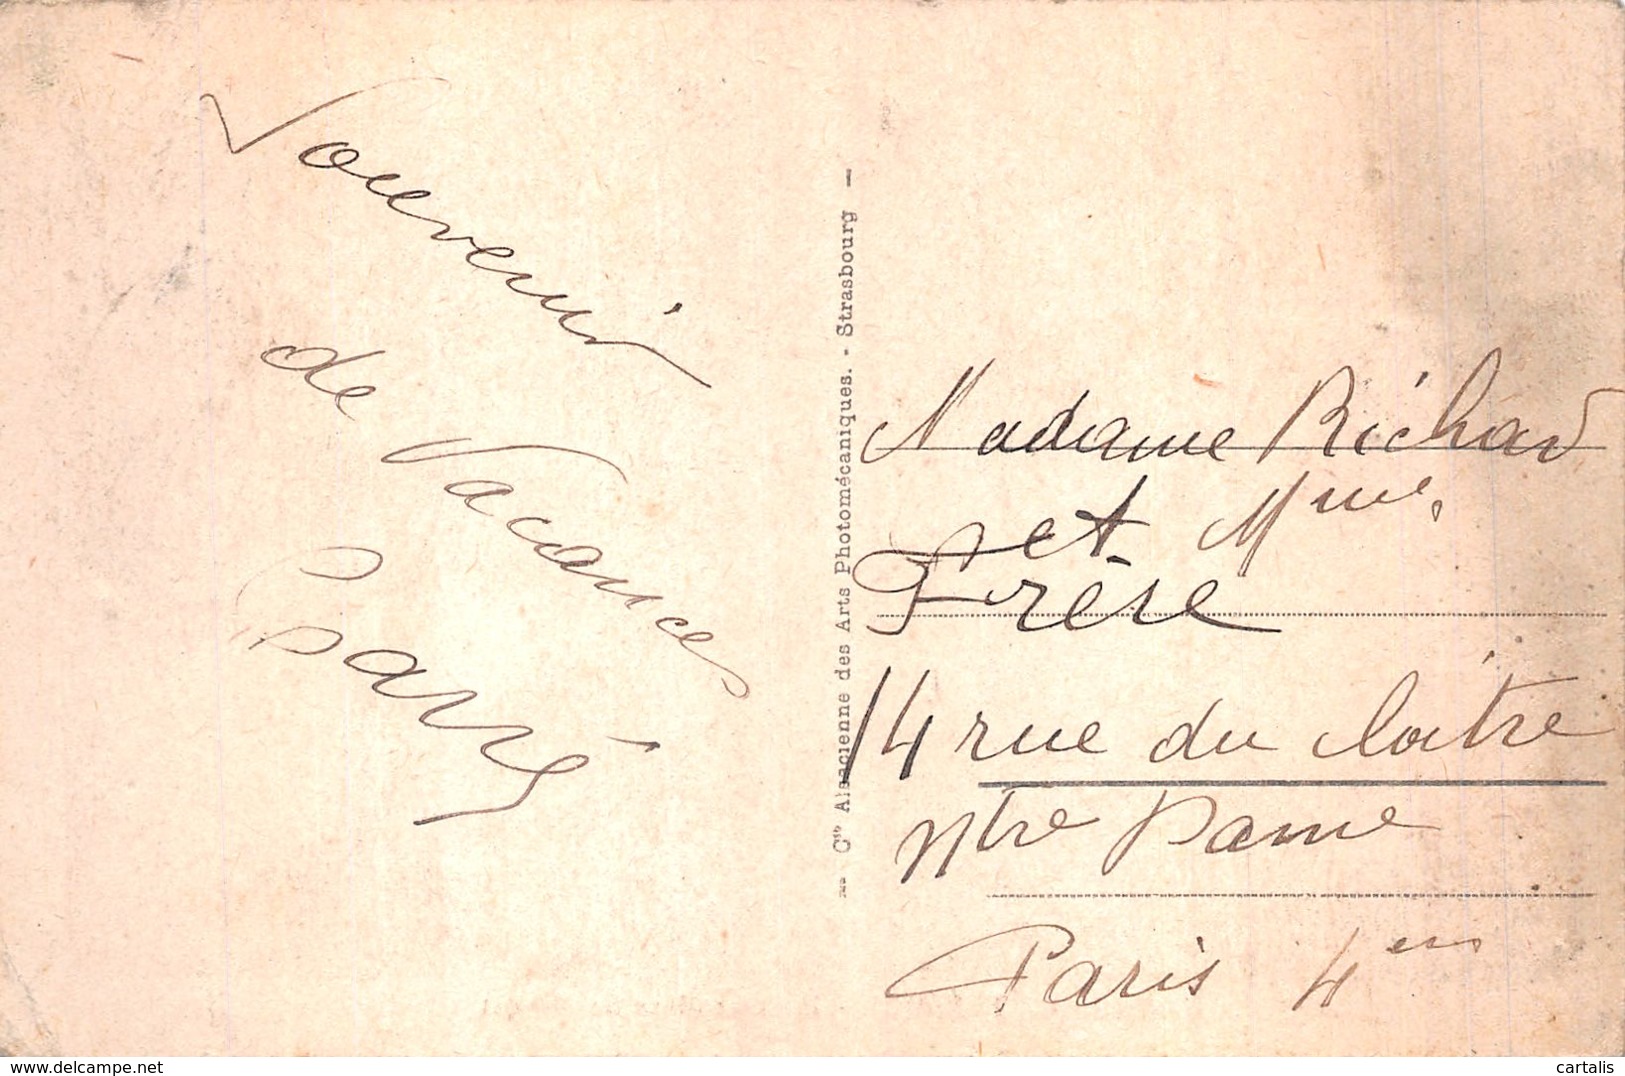 Souvenir
de Vacances
Cie Alsacienne des Arts Photomécaniques. - Strasbourg
Madame Richard
et Mme
Frère
14 rue du cloitre
Ntre Dame
Paris 4em
cartalis